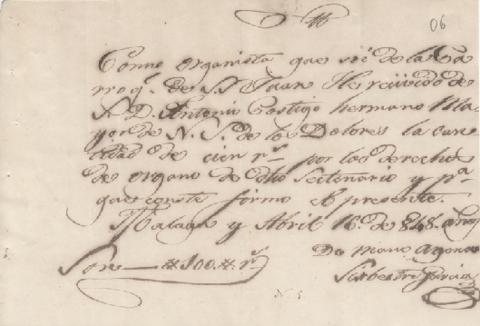 06
Como organista que soi de la Par
roq.ª de S.n Juan He recivido de
S.r D. Antonio Castigo hermano Ma
yor de N. S.ª de los Dolores la can
tidad de cien r.s por los derechos
de organo de dho Setenario y p.ª
que conste firmo el presente.
Malaga y Abril 16 de 848, años
Son — #100.# r.s
Garcia
N. 5